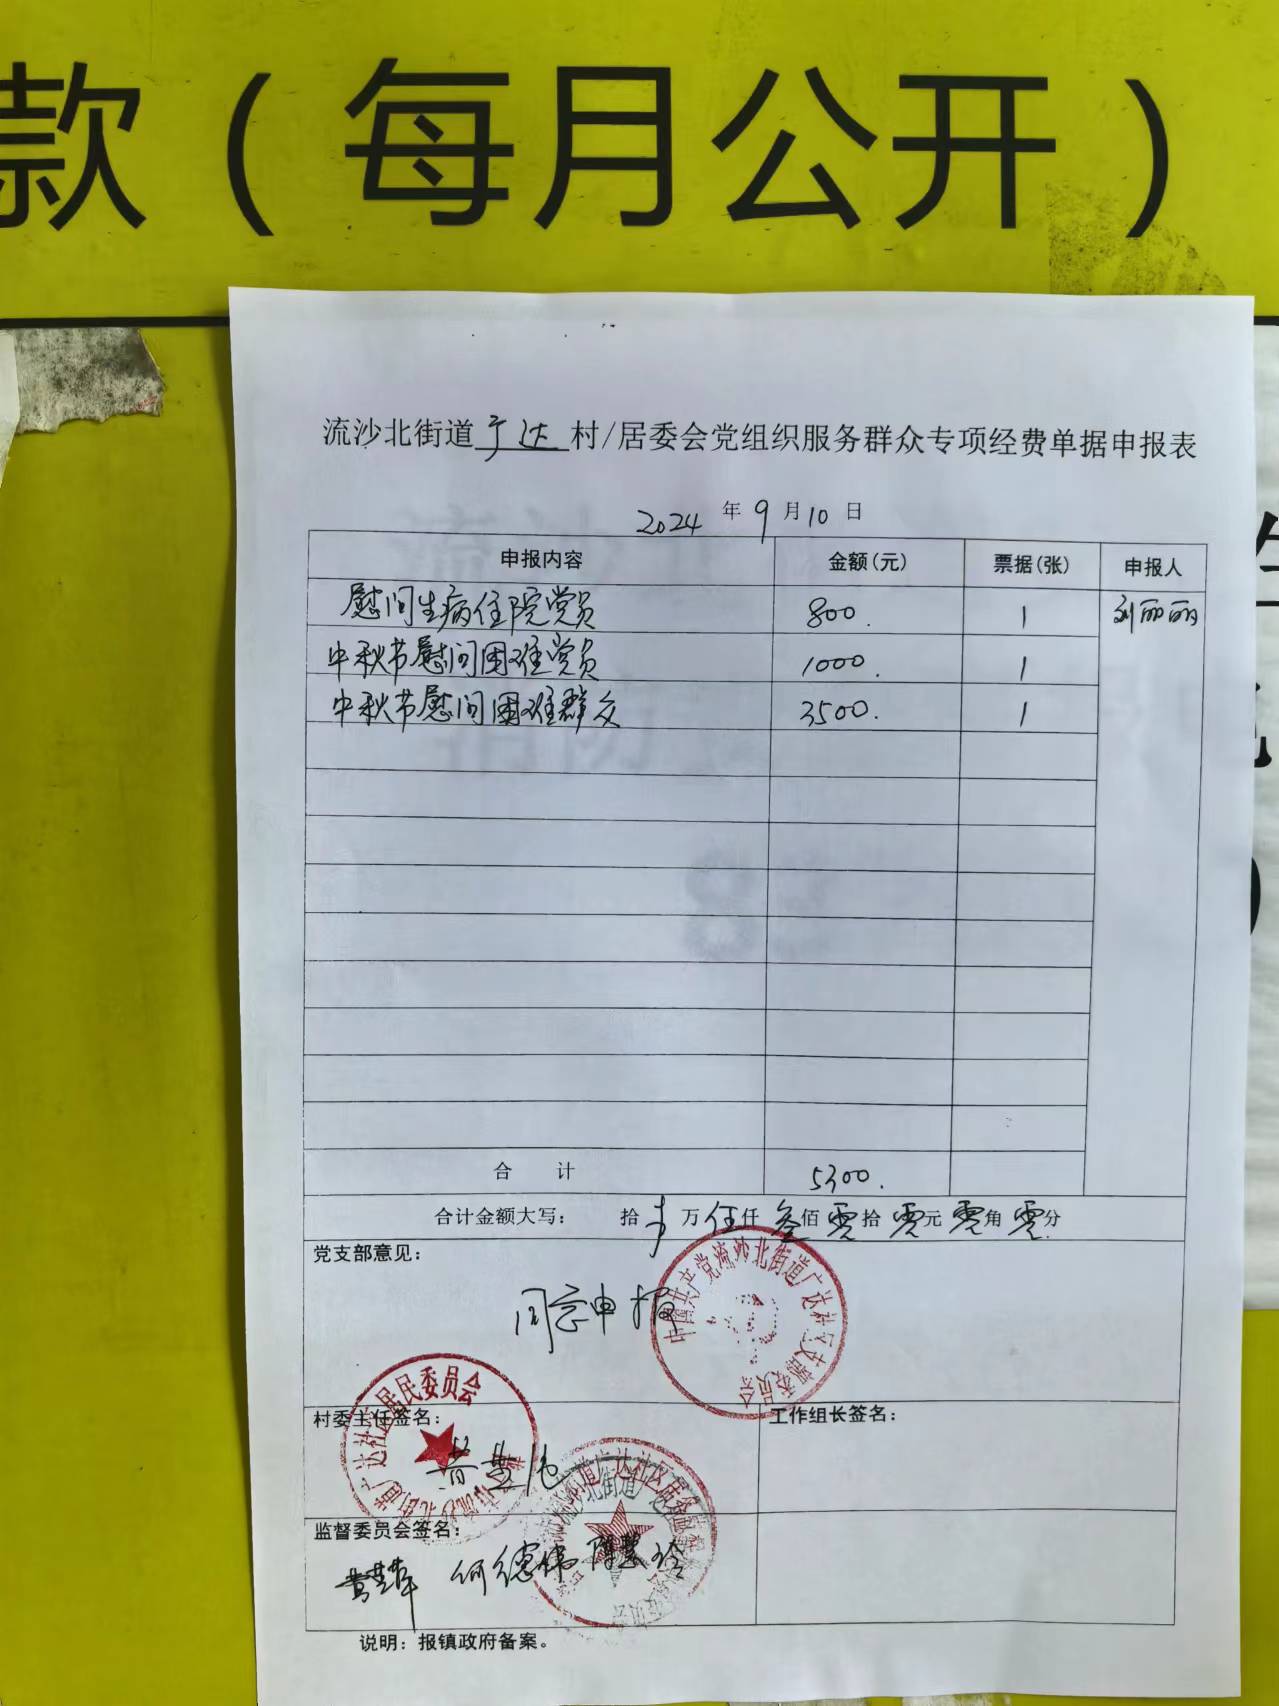 款（每月公开）
流沙北街道广达村/居委会党组织服务群众专项经费单据申报表
2024年9月10日
申报内容 金额(元) 票据(张) 申报人
慰问生病住院党员 800. 1 刘丽丽
中秋节慰问困难党员 1000. 1
中秋节慰问困难群众 3500. 1
合计 5300.
合计金额大写： 拾 万伍仟叁佰零拾零元零角零分
党支部意见：
同意申报
中国共产党流沙北街道广达社区支部委员会
村委主任签名： 工作组长签名：
流沙北街道广达社区居民委员会
监督委员会签名：
何德伟 陈慧玲
说明：报镇政府备案。